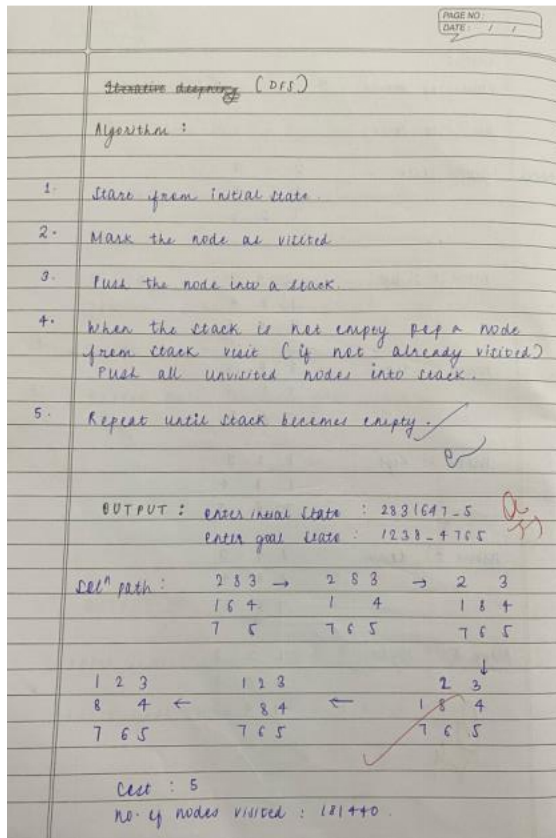 PAGE NO:
DATE: / /
Iterative deepning (DFS)
Algorithm :
1. Start from initial state.
2. Mark the node as visited
3. Push the node into a stack.
4. When the stack is not empty pop a node
from stack visit (if not already visited)
Push all unvisited nodes into stack.
5. Repeat until stack becomes empty.
OUTPUT : enter initial state : 2831647_5
enter goal state : 1238_4765
solⁿ path : 2 8 3 → 2 8 3 → 2 3
1 6 4 1 4 1 8 4
7 5 7 6 5 7 6 5
↓
1 2 3 1 2 3 2 3
8 4 ← 8 4 ← 1 8 4
7 6 5 7 6 5 7 6 5
Cost : 5
no. of nodes visited : 181440.